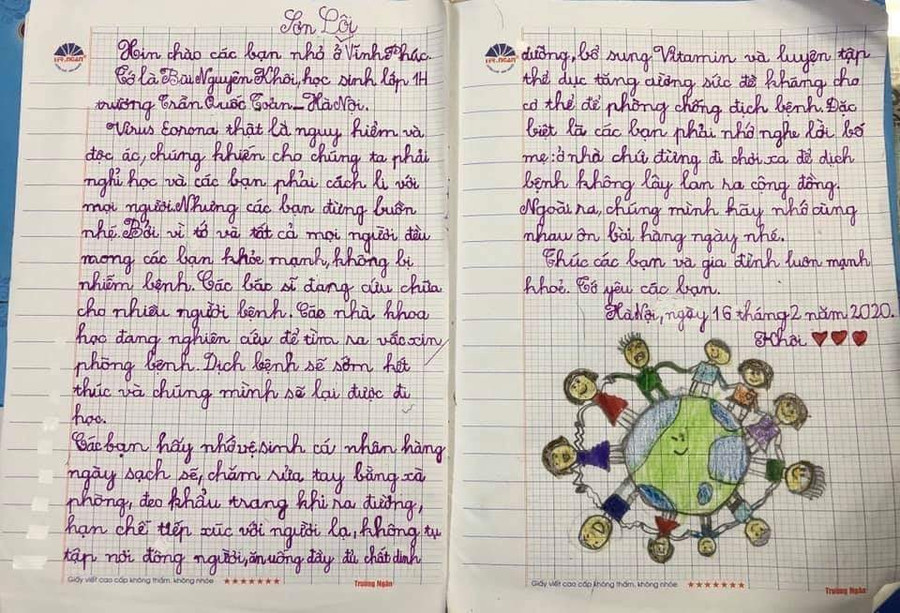 Sơn Lôi
Xin chào các bạn nhỏ ở Vĩnh Phúc.
Tớ là Bùi Nguyên Khôi, học sinh lớp 1H
trường Trần Quốc Toản - Hà Nội.
Virus Corona thật là nguy hiểm và
độc ác, chúng khiến cho chúng ta phải
nghỉ học và các bạn phải cách li với
mọi người. Nhưng các bạn đừng buồn
nhé. Bởi vì tớ và tất cả mọi người đều
mong các bạn khỏe mạnh, không bị
nhiễm bệnh. Các bác sĩ đang cứu chữa
cho nhiều người bệnh. Các nhà khoa
học đang nghiên cứu để tìm ra vắc xin
phòng bệnh. Dịch bệnh sẽ sớm kết
thúc và chúng mình sẽ lại được đi
học.
Các bạn hãy nhớ vệ sinh cá nhân hàng
ngày sạch sẽ, chăm rửa tay bằng xà
phòng, đeo khẩu trang khi ra đường,
hạn chế tiếp xúc với người lạ, không tụ
tập nơi đông người, ăn uống đầy đủ chất dinh
Giấy viết cao cấp không thấm, không nhòe ★★★★★★★ Trường Ngân
dưỡng, bổ sung Vitamin và luyện tập
thể dục tăng cường sức đề kháng cho
cơ thể để phòng chống dịch bệnh. Đặc
biệt là các bạn phải nhớ nghe lời bố
mẹ: ở nhà chứ đừng đi chơi xa để dịch
bệnh không lây lan ra cộng đồng.
Ngoài ra, chúng mình hãy nhớ cùng
nhau ôn bài hàng ngày nhé.
Chúc các bạn và gia đình luôn mạnh
khoẻ. Tớ yêu các bạn.
Hà Nội, ngày 16 tháng 2 năm 2020.
Khôi ♥♥♥
Giấy viết cao cấp không thấm, không nhòe ★★★★★★★ Trường Ngân